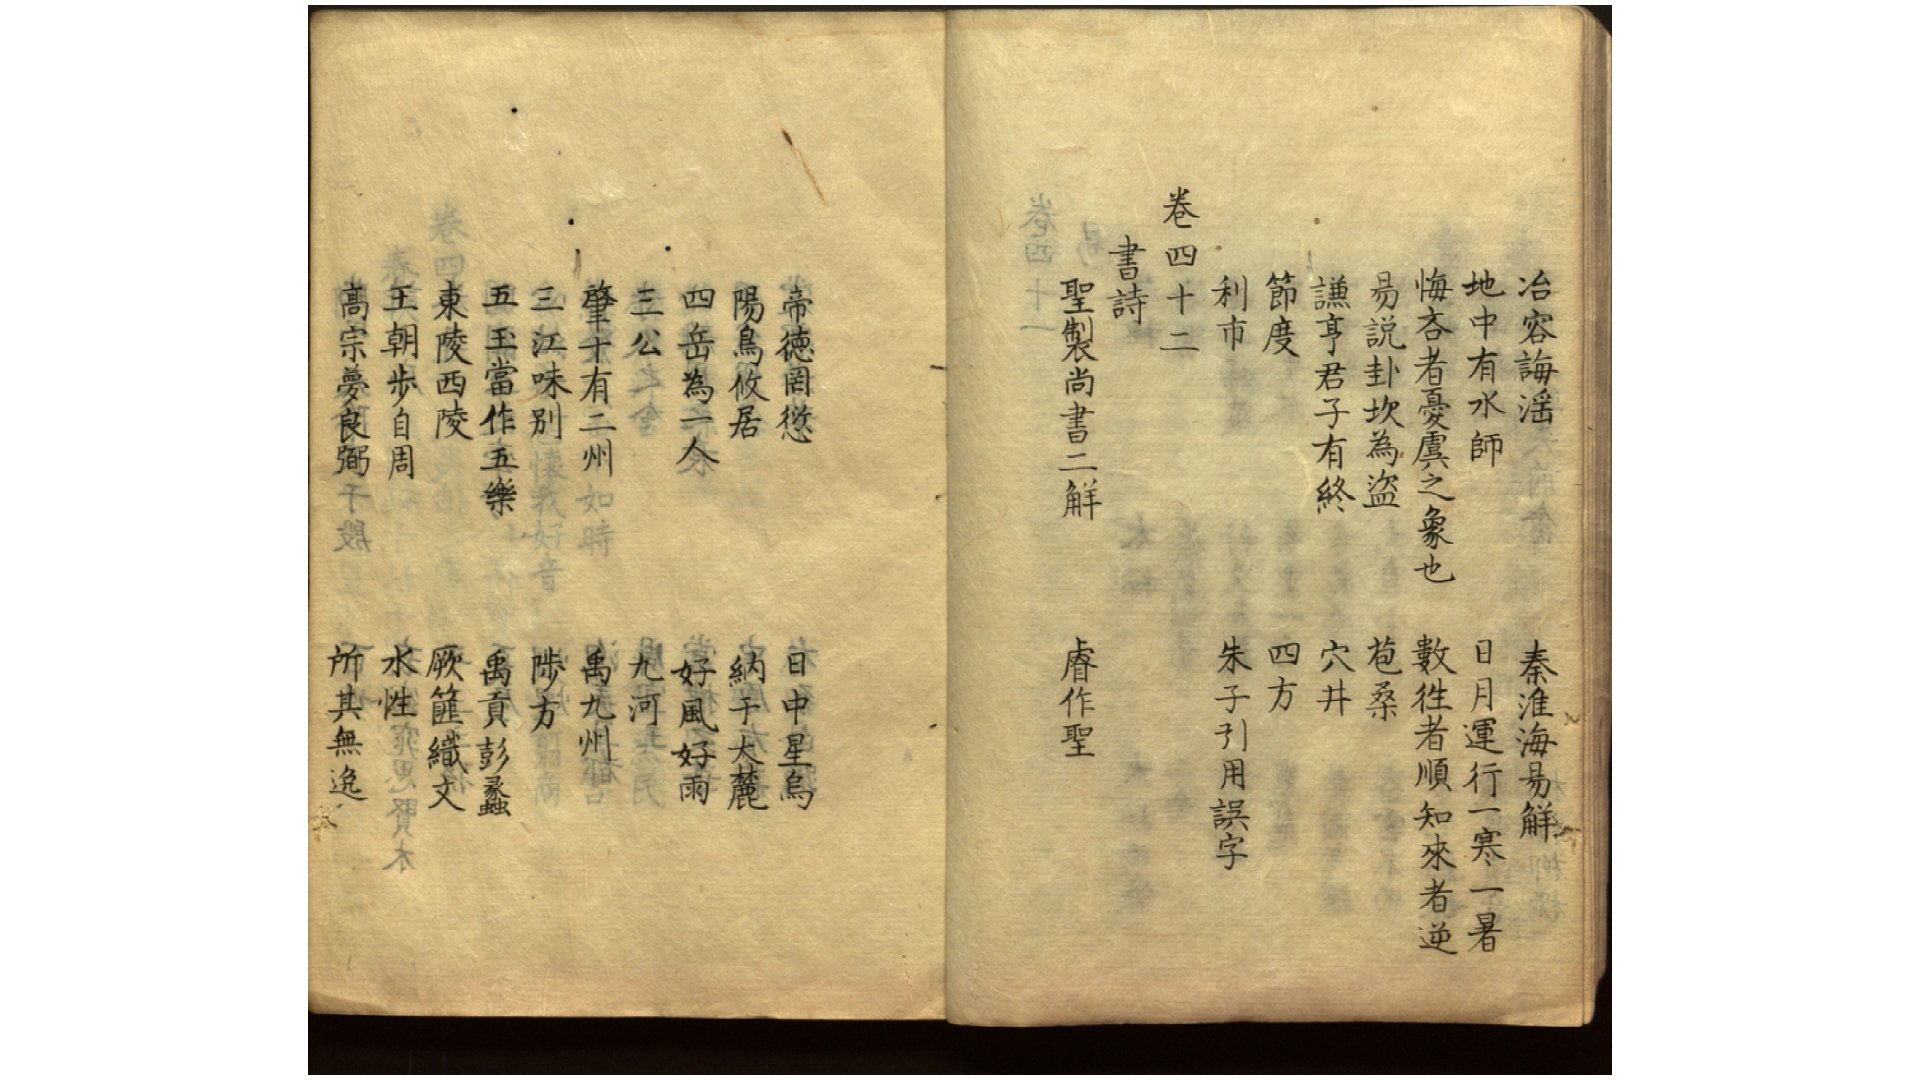 冶容誨滛　秦淮海易觧
地中有水師　日月運行一寒一暑
悔吝者憂虞之象也　數徃者順知來者逆
易説卦坎為盗　苞桑
謙亨君子有終　穴井
節度　四方
利市　朱子引用誤字
卷四十二
書詩
聖製尚書二觧　睿作聖
帝德罔愆　日中星鳥
陽鳥攸居　納于大麓
四岳為一人　好風好雨
三公　九河
肇十有二州　禹九州
三江味别　陟方
五王當作五樂　禹貢彭蠡
東陵西陵　厥篚織文
王朝步自周　水性
高宗夢良弼　所其無逸